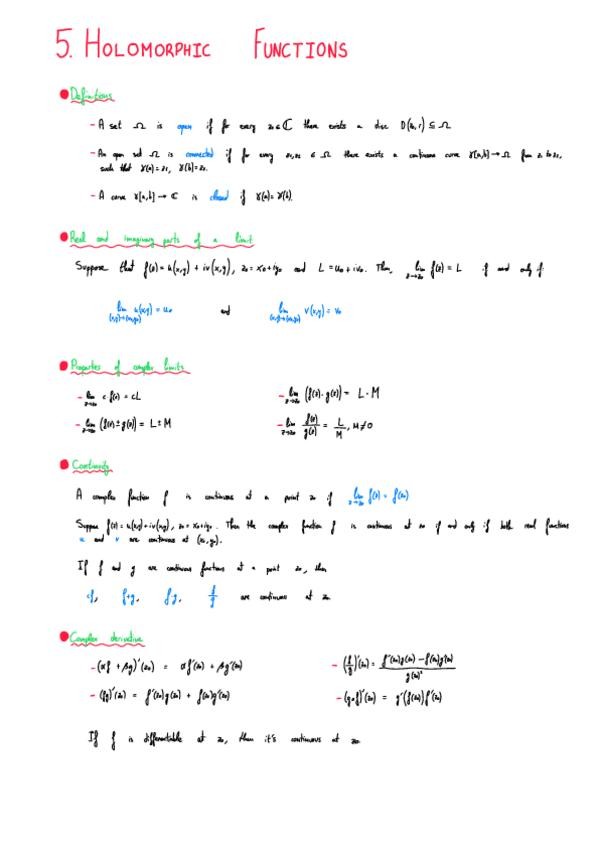 5. HOLOMORPHIC FUNCTIONS
Definitions
- A set Ω is open if for every z₀∈ℂ there exists a disc D(z₀,r) ⊆ Ω
- An open set Ω is connected if for every z₁,z₂ ∈ Ω there exists a continuous curve γ[a,b]→Ω from z₁ to z₂,
such that γ(a)=z₁, γ(b)=z₂.
- A curve γ[a,b]→ℂ is closed if γ(a)=γ(b).
Real and imaginary parts of a limit
Suppose that f(z)=u(x,y)+iv(x,y), z₀=x₀+iy₀ and L=u₀+iv₀. Then, lim z→z₀ f(z)=L if and only if
lim (x,y)→(x₀,y₀) u(x,y)=u₀ and lim (x,y)→(x₀,y₀) v(x,y)=v₀
Properties of complex limits
- lim z→z₀ c·f(z)=cL - lim z→z₀ (f(z)·g(z))= L·M
- lim z→z₀ (f(z)±g(z))= L±M - lim z→z₀ f(z)/g(z) = L/M, M≠0
Continuity
A complex function f is continuous at a point z₀ if lim z→z₀ f(z)=f(z₀)
Suppose f(z)=u(x,y)+iv(x,y), z₀=x₀+iy₀. Then the complex function f is continuous at z₀ if and only if both real functions
u and v are continuous at (x₀,y₀).
If f and g are continuous functions at a point z₀, then
cf, f+g, f·g, f/g are continuous at z₀
Complex derivative
- (αf + βg)'(z₀) = αf'(z₀) + βg'(z₀) - (f/g)'(z₀) = f'(z₀)g(z₀) - f(z₀)g'(z₀) / g(z₀)²
- (fg)'(z₀) = f'(z₀)g(z₀) + f(z₀)g'(z₀) - (g∘f)'(z₀) = g'(f(z₀))f'(z₀)
If f is differentiable at z₀, then it's continuous at z₀